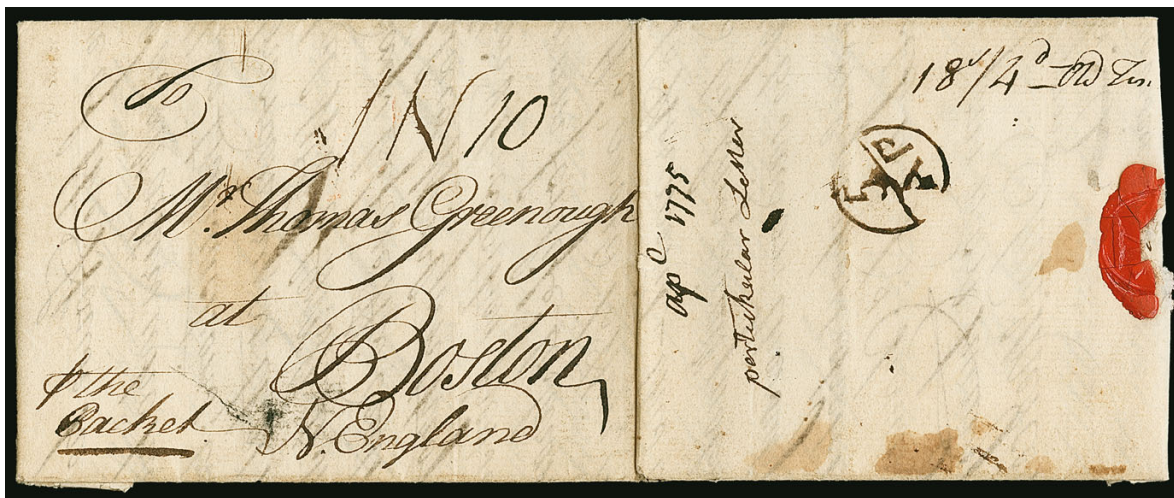 To
1N 10
Mr. Thomas Greenough
at
Boston
N. England
⅌ the
Packet
apl 1775
pertickular Letter
18/4d Old Ten